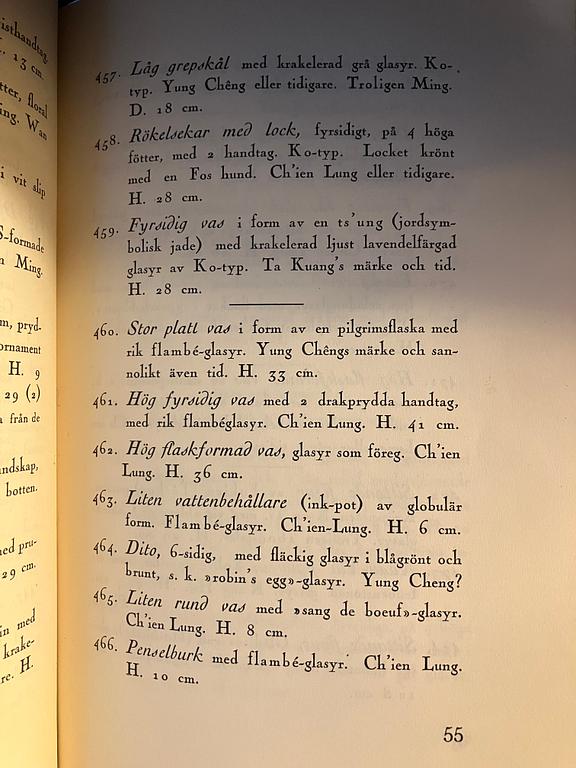 isthandtag.
13 cm.
tter, floral
ing. Wan
i vit slip
S-formade
n Ming.
m, pryd-
ornament
H. 9
29 (2)
a från de
ndskap,
botten.
ed pru-
29 cm.
in med
krake-
re. H.
457. Låg grepskål med krakelerad grå glasyr. Ko-
typ. Yung Chêng eller tidigare. Troligen Ming.
D. 18 cm.
458. Rökelsekar med lock, fyrsidigt, på 4 höga
fötter, med 2 handtag. Ko-typ. Locket krönt
med en Fos hund. Ch'ien Lung eller tidigare.
H. 28 cm.
459. Fyrsidig vas i form av en ts'ung (jordsym-
bolisk jade) med krakelerad ljust lavendelfärgad
glasyr av Ko-typ. Ta Kuang's märke och tid.
H. 28 cm.
460. Stor platt vas i form av en pilgrimsflaska med
rik flambé-glasyr. Yung Chêngs märke och san-
nolikt även tid. H. 33 cm.
461. Hög fyrsidig vas med 2 drakprydda handtag,
med rik flambéglasyr. Ch'ien Lung. H. 41 cm.
462. Hög flaskformad vas, glasyr som föreg. Ch'ien
Lung. H. 36 cm.
463. Liten vattenbehållare (ink-pot) av globulär
form. Flambé-glasyr. Ch'ien-Lung. H. 6 cm.
464. Dito, 6-sidig, med fläckig glasyr i blågrönt och
brunt, s. k. »robin's egg»-glasyr. Yung Cheng?
465. Liten rund vas med »sang de boeuf»-glasyr.
Ch'ien Lung. H. 8 cm.
466. Penselburk med flambé-glasyr. Ch'ien Lung.
H. 10 cm.
55